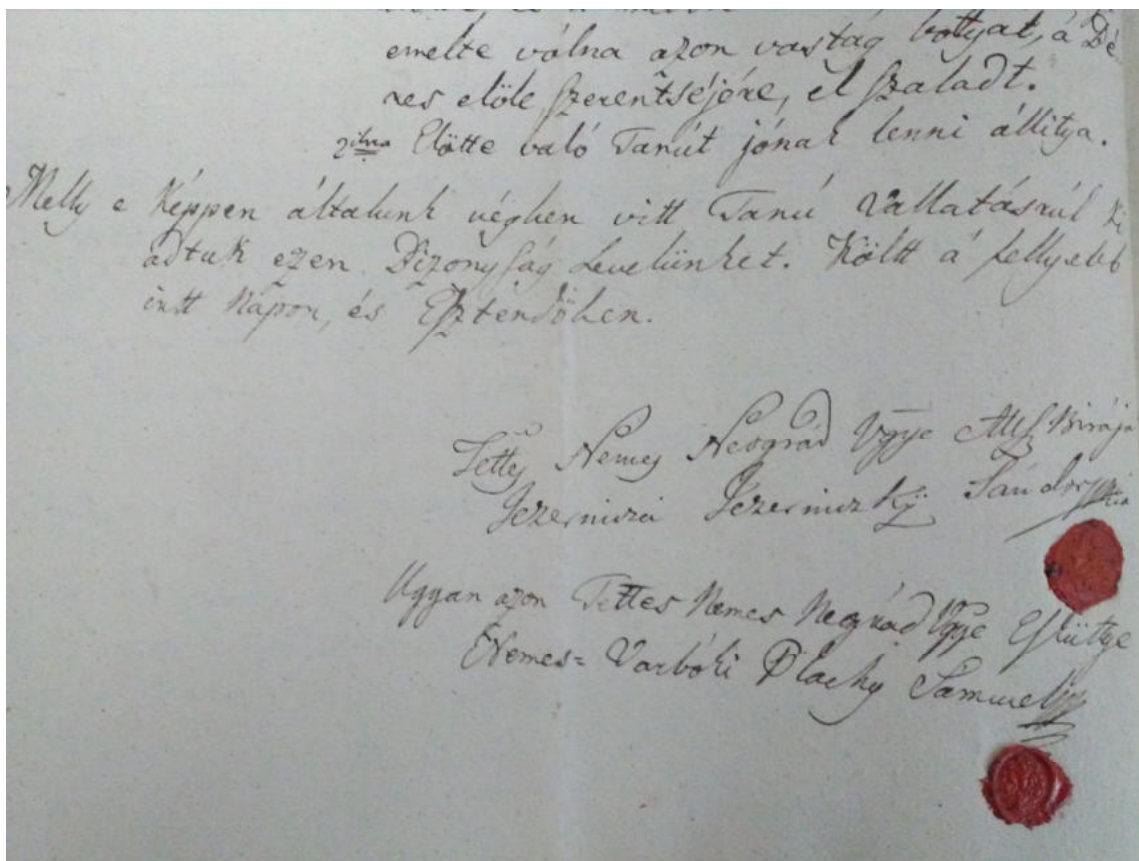 emelte válna azon vastag bottyat, á Dé
res elöle szerentséjére, el szaladt.
2dikra Elötte való Tanút jónak lenni állitya.
Melly e Képpen általunk végben vitt Tanú Vallatásrúl ki
adtuk ezen Bizonyság Levelünket. Költ á fellyebb
irtt Napon, és Esztendöben.
Tettes Nemes Neográd Vgye Alls Birája
Jezerniczei Jezerniczký Sándor
Ugyan azon Tettes Nemes Nográd Vgye Esküttye
Nemes= Varbóki Plachy Samuel